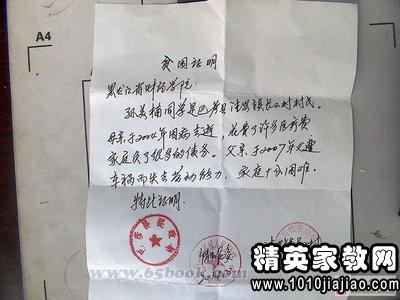 A4
贫困证明
黑龙江省财政学院:
孙美楠同学是巴彦县洼兴镇长江村村民。
母亲于2004年因病去逝,花费了许多医疗费
家庭负了很多的债务。父亲于2007年又遭
车祸而失去劳动能力,家庭十分困难。
特此证明。
www.65book.com
精英家教网
www.1010jiajiao.com